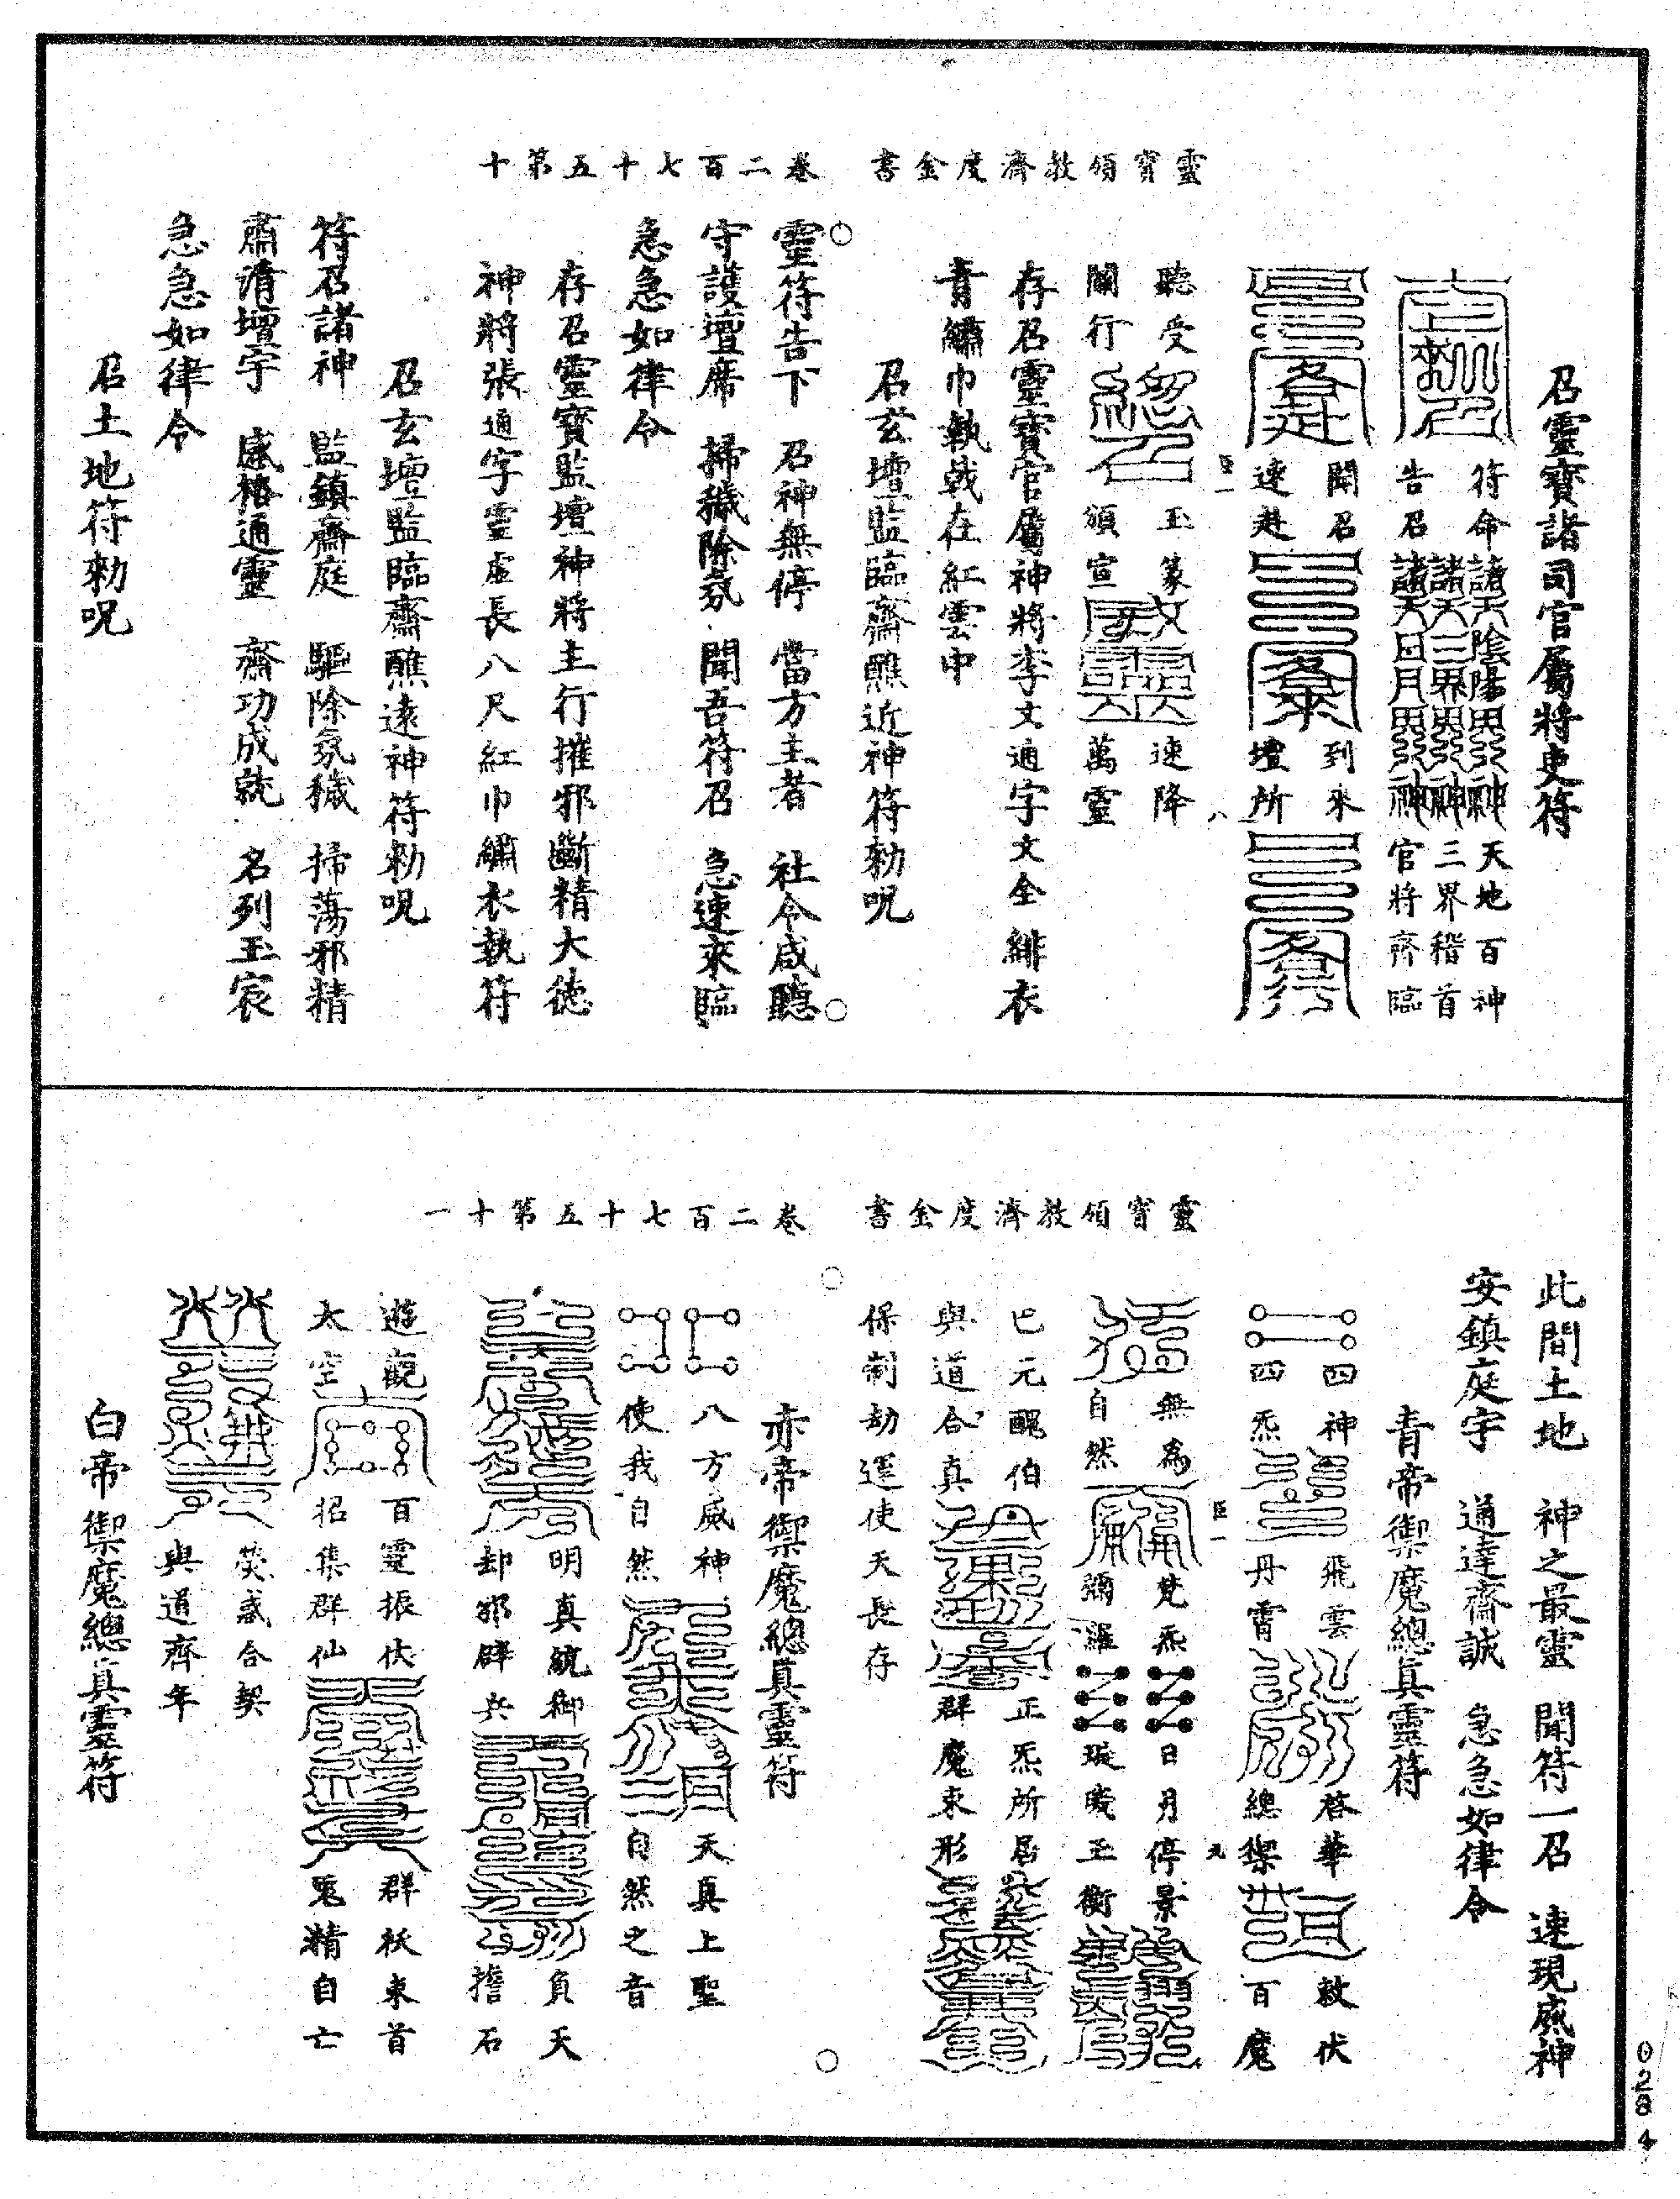 靈寶領教濟度金書　卷二百七十五第十
召靈寶諸司官屬將吏符
符命　天地百神
三界稽首
告召　官將齊臨
聞召　到來
速赴　壇所
聽受　玉篆　速降
關行　頒宣　萬靈
存召靈寶官屬神將李文通字文全緋衣
青繡巾執戟在紅雲中
召玄壇監臨齋醮近神符勑呪
靈符告下　召神無停　當方主者　社令咸聽
守護壇席　掃穢除氛　聞吾符召　急速來臨
急急如律令
存召靈寶監壇神將主行摧邪斷精大德
神將張通字靈虛長八尺紅巾繡衣執符
召玄壇監臨齋醮遠神符勑呪
符召諸神　監鎮齋庭　驅除氛穢　掃蕩邪精
肅清壇宇　感格通靈　齋功成就　名列玉宸
急急如律令
召土地符勑呪
靈寶領教濟度金書　卷二百七十五第十一
此間土地　神之最靈　聞符一召　速現威神
安鎮庭宇　通達齋誠　急急如律令
青帝禦魔總真靈符
四神　飛雲　啓華　敕伏
四炁　丹霄　總禦　百魔
無為　梵炁　日月停景
自然　彌羅　璇璣玉衡
巳元醜伯　正炁所居
與道合真　群魔束形
保制劫運使天長存
赤帝禦魔總真靈符
八方威神　天真上聖
使我自然　自然之音
明真統御　負天
却邪辟兵　擔石
遊觀　百靈振伏　群祅束首
太空　招集群仙　鬼精自亡
熒惑合契
與道齊年
白帝禦魔總真靈符
0284